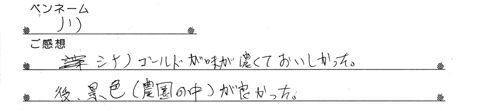 ペンネーム
川
ご感想
シナノゴールドが味が濃くておいしかった。
後、景色(農園の中)が良かった。